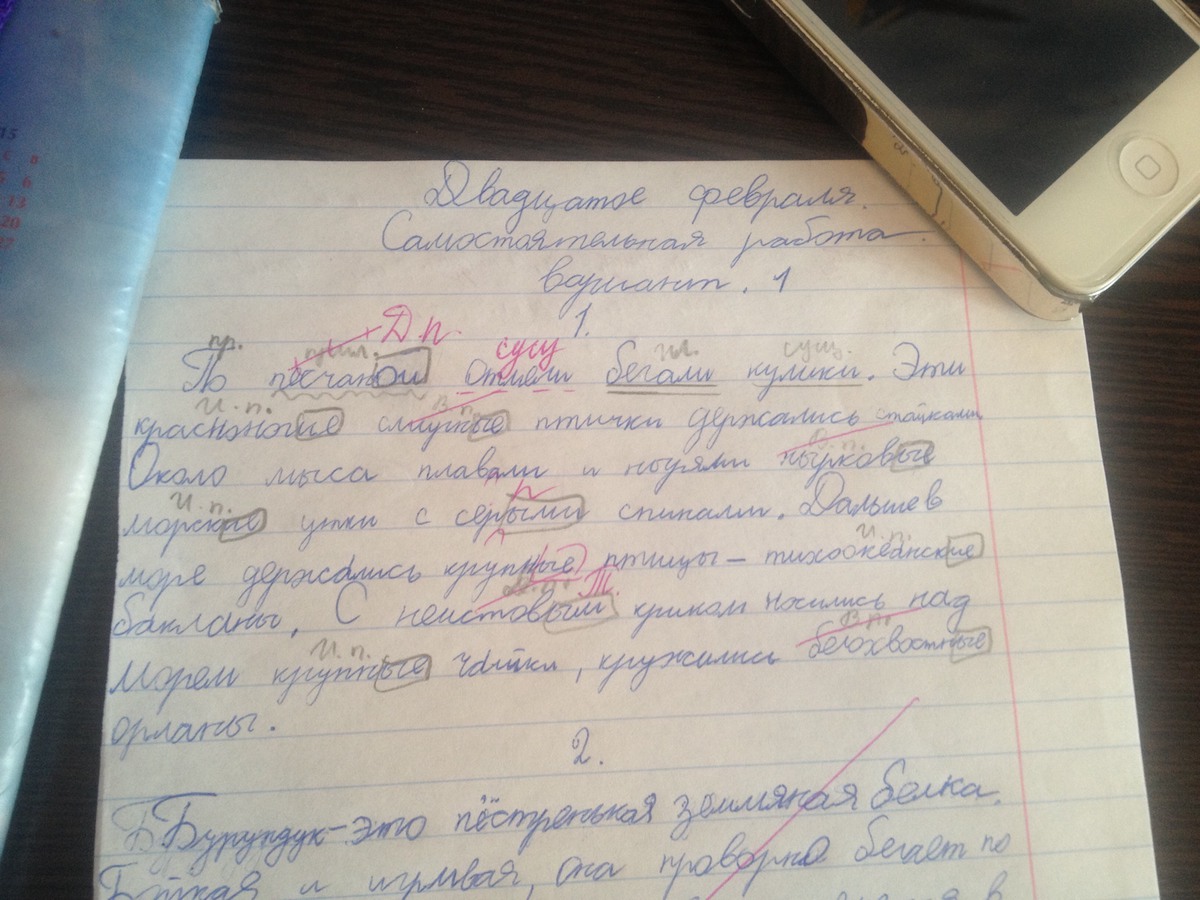 Двадцатое февраля.
Самостоятельная работа.
вариант. 1
1.
Д.п.
пр. прил. сущ гл. сущ.
По песчаной отмели бегали кулики. Эти
И.п. В.п.
красноногие птички держались стайками
В.п.
Около мыса плавали и ныряли нырковые
И.п.
морские утки с серыми спинами. Дальше в
И.п.
море держались крупные птицы – тихоокеанские
Т.
бакланы, С неистовым криком носились над
И.п. В.п.
морем крупные чайки, кружились белохвостные
орланы.
2.
Бурундук – это пёстренькая земляная белка.
Бойкая и игривая, она проворно бегает по
15
6
13
20
27